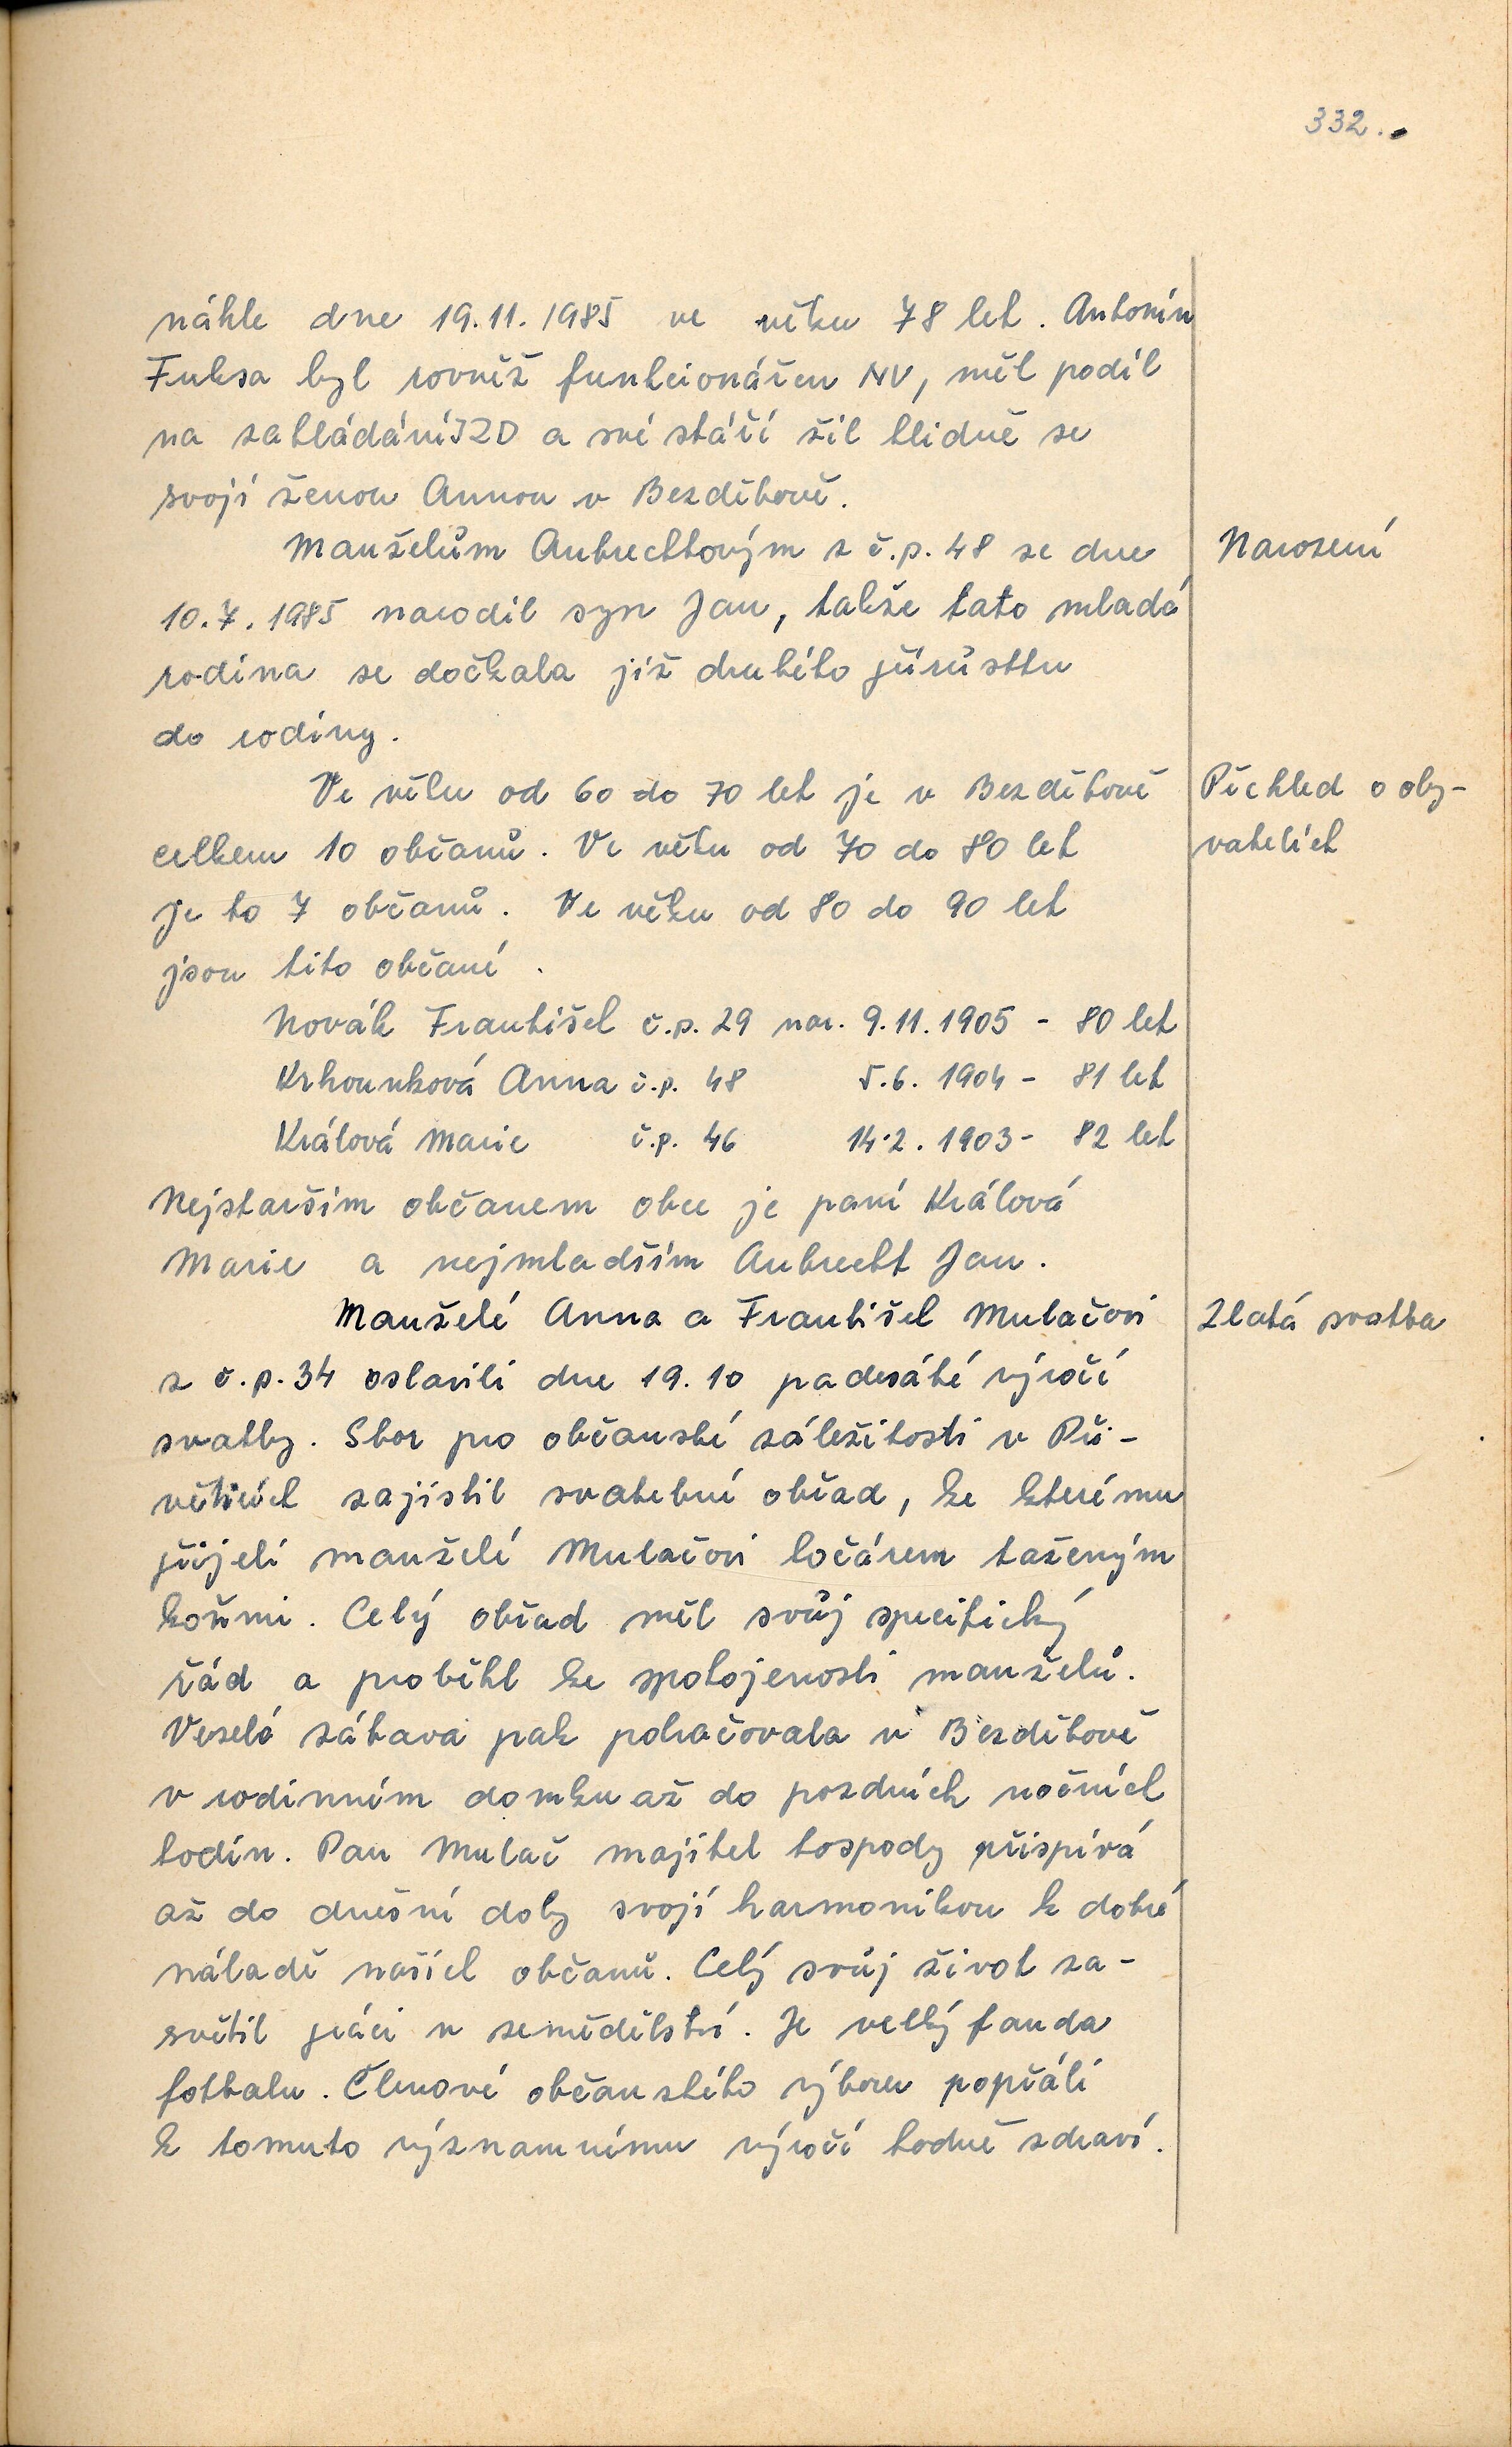 332.
náhle dne 19.11.1985 ve věku 78 let. Antonín
Fuksa byl rovněž funkcionářem NV, měl podíl
na zakládání JZD a své stáří žil klidně se
svojí ženou Annou v Bezděkově.
Manželům Aubrechtovým z č.p. 48 se dne
Narození
10.7.1985 narodil syn Jan, takže tato mladá
rodina se dočkala již druhého přírůstku
do rodiny.
Ve věku od 60 do 70 let je v Bezděkově
Přehled o oby-
celkem 10 občanů. Ve věku od 70 do 80 let
vatelích
je to 7 občanů. Ve věku od 80 do 90 let
jsou tito občané.
Novák František č.p. 29 nar. 9.11.1905 - 80 let
Krhounková Anna č.p. 48 5.6.1904 - 81 let
Králová Marie č.p. 46 14.2.1903 - 82 let
Nejstarším občanem obce je paní Králová
Marie a nejmladším Aubrecht Jan.
Manželé Anna a František Mulačovi
Zlatá svatba
z č.p. 34 oslavili dne 19.10 padesáté výročí
svatby. Sbor pro občanské záležitosti v Při-
věticích zajistil svatební obřad, ke kterému
přijeli manželé Mulačovi kočárem taženým
koňmi. Celý obřad měl svůj specifický
řád a proběhl ke spokojenosti manželů.
Veselá zábava pak pokračovala v Bezděkově
v rodinném domku až do pozdních nočních
hodin. Pan Mulač majitel hospody přispívá
až do dnešní doby svojí harmonikou k dobré
náladě našich občanů. Celý svůj život za-
světil práci v zemědělství. Je velký fanda
fotbalu. Členové občanského výboru popřáli
k tomuto významnému výročí hodně zdraví.